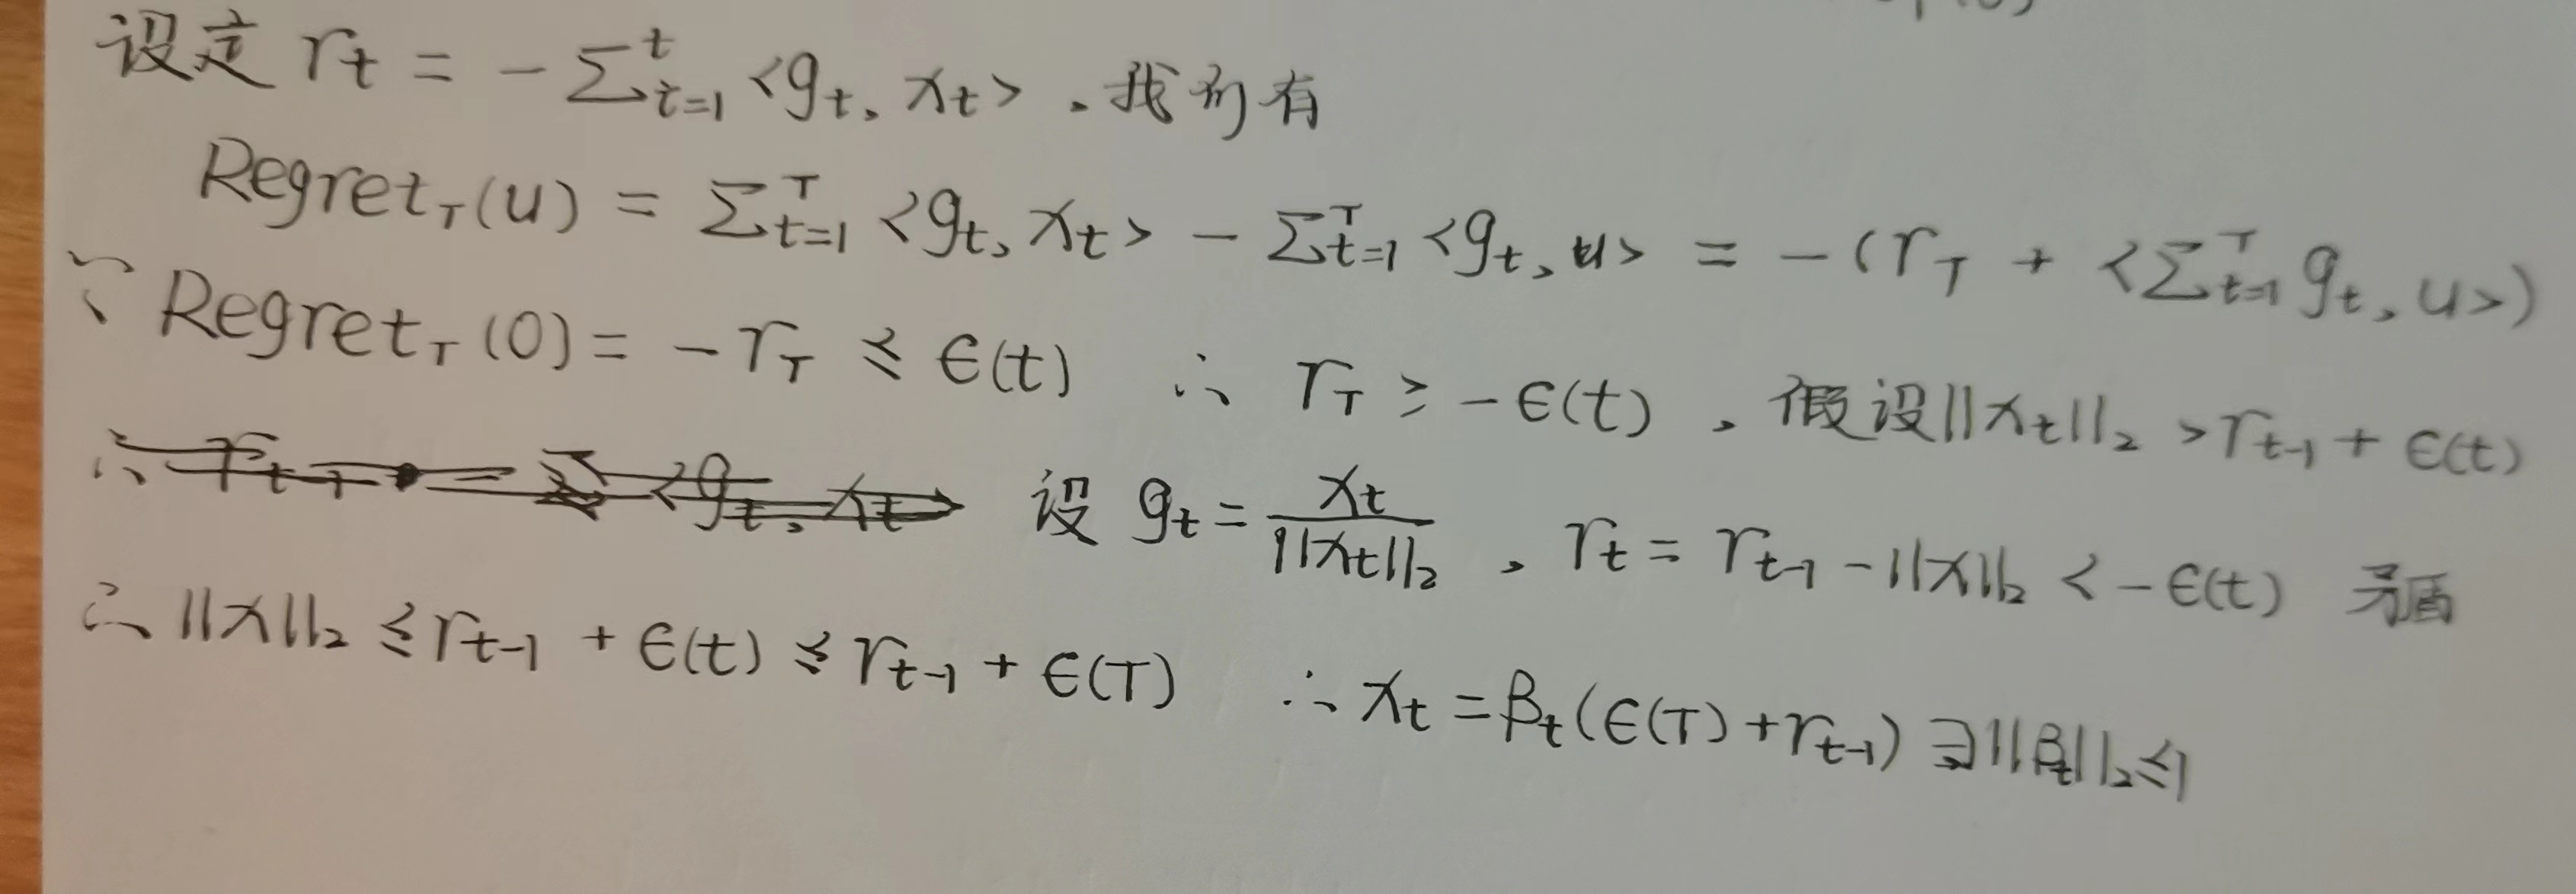 设定 r_t = -∑_{t=1}^{t} <g_t, x_t>, 我们有
Regret_T(u) = ∑_{t=1}^{T} <g_t, x_t> - ∑_{t=1}^{T} <g_t, u> = -(r_T + <∑_{t=1}^{T} g_t, u>)
∵ Regret_T(0) = -r_T ≤ ϵ(t) ∴ r_T ≥ -ϵ(t), 假设||x_t||_2 > r_{t-1} + ϵ(t)
设 g_t = x_t/||x_t||_2, r_t = r_{t-1} - ||x||_2 < -ϵ(t) 矛盾
∴ ||x||_2 ≤ r_{t-1} + ϵ(t) ≤ r_{t-1} + ϵ(T) ∴ x_t = β_t(ϵ(T) + r_{t-1}) ∃||β_t||_2 ≤ 1